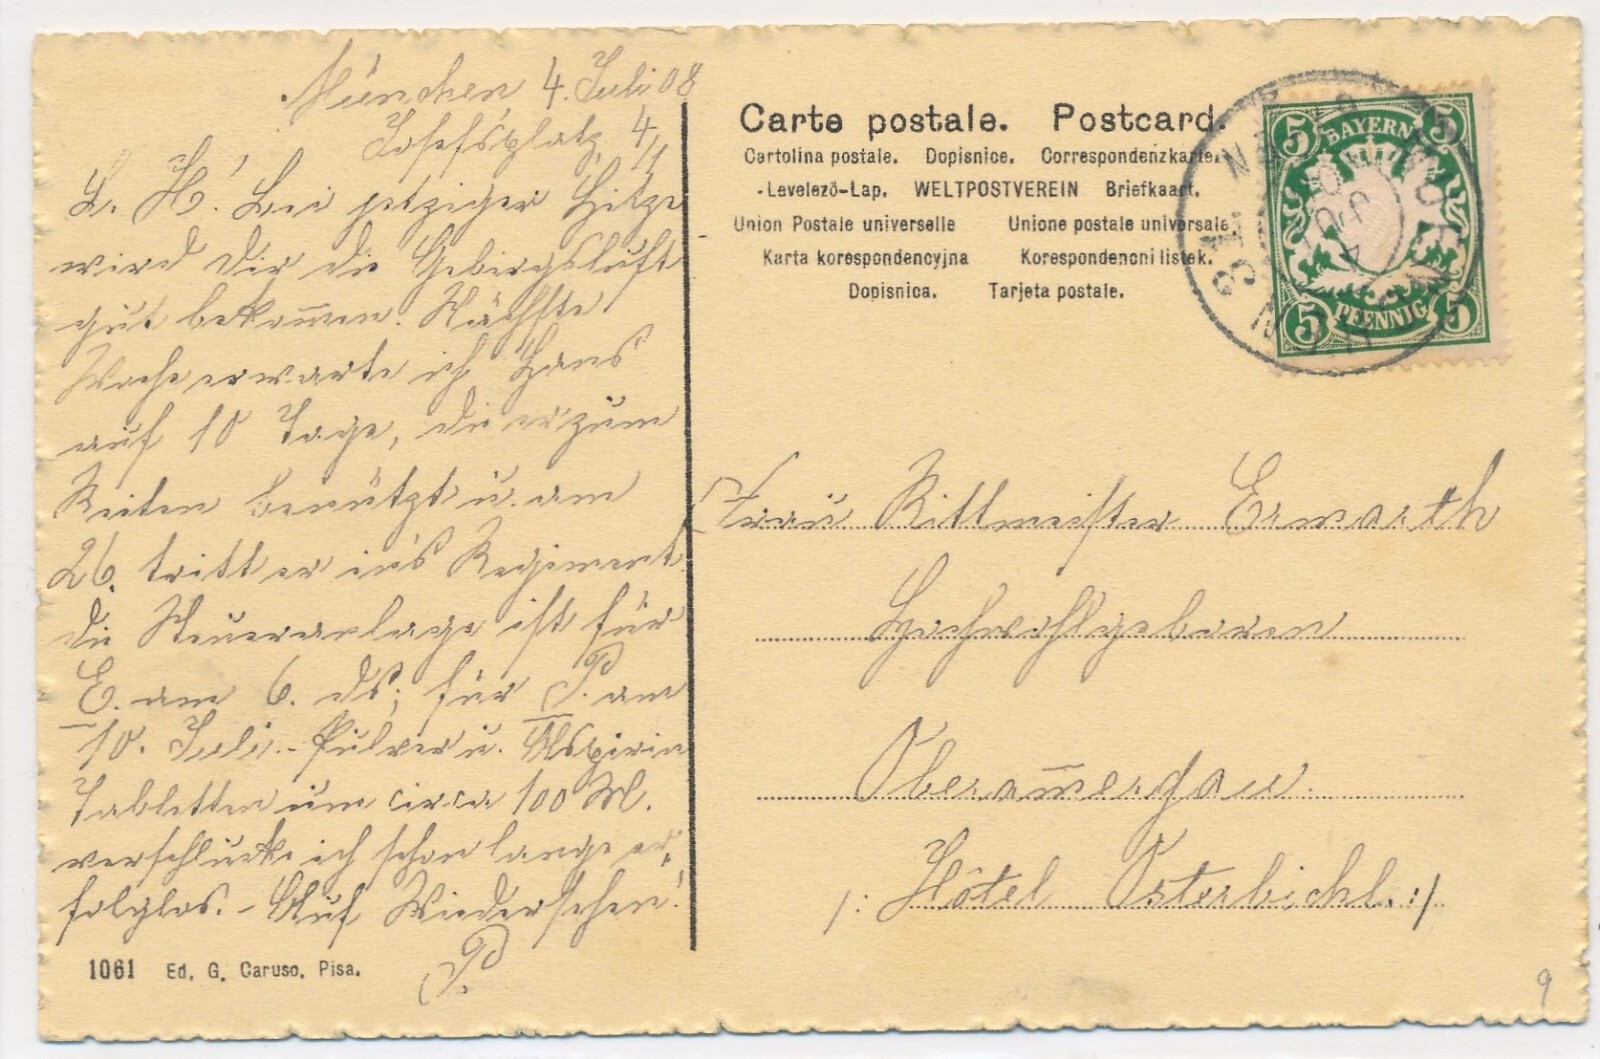 München 4. Juli 08
Josefsplatz 4/1
L. H.! Bei jetziger Hitze
wird Dir die Gebirgsluft
gut bekom̄en. Nächste
Woche erwarte ich Hans
auf 10 Tage, die er zum
Reiten benützt u. am
26. tritt er in's Regiment.
Die Steueranlage ist für
E. am 6. ds; für P. am
10. Juli. - Pulver u. Aspirin
Tabletten um circa 100 M.
verschluckte ich schon lange er-
folglos. - Auf Wiedersehen!
P.
1061 Ed. G. Caruso, Pisa.
Carte postale. Postcard.
Cartolina postale. Dopisnice. Correspondenzkarte.
-Levelező-Lap. WELTPOSTVEREIN Briefkaart.
Union Postale universelle Unione postale universale
Karta korespondencyjna Korespondencni listek.
Dopisnica. Tarjeta postale.
5 BAYERN 5
5 PFENNIG 5
MÜNCHEN
Frau Rittmeister Ermarth
Hochwohlgeboren
Oberam̄ergau.
/: Hôtel Osterbichl. :/
9